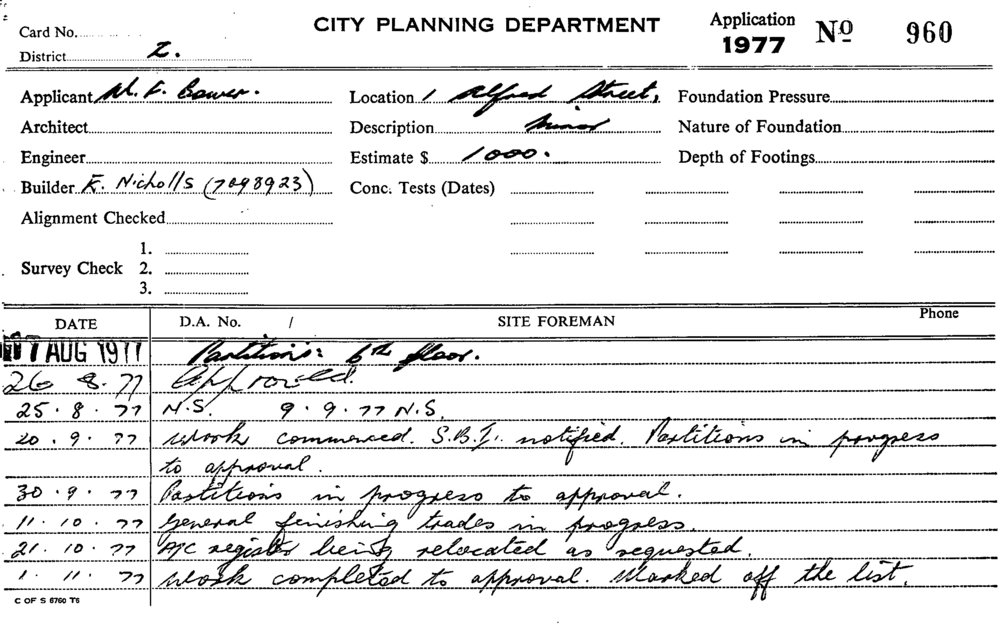 CITY PLANNING DEPARTMENT
Application 1977 No 960
Card No.
District Z.
Applicant M. F. Cower.
Location 1 Alfred Street,
Foundation Pressure
Architect
Description Minor
Nature of Foundation
Engineer
Estimate $ 1000.
Depth of Footings
Builder F. Nicholls (7098923)
Conc. Tests (Dates)
Alignment Checked
Survey Check 1.
2.
3.
DATE D.A. No. / SITE FOREMAN Phone
AUG 1977 Partitions: 6th floor.
26 8. 77 Approved.
25.8.77 N.S. 9.9.77 N.S.
20.9.77 Work commenced. S.B.I. notified. Partitions in progress
to approval.
30.9.77 Partitions in progress to approval.
11.10.77 General finishing trades in progress.
21.10.77 A/C register being relocated as requested.
1.11.77 Work completed to approval. Marked off the list.
C OF S 6760 T6